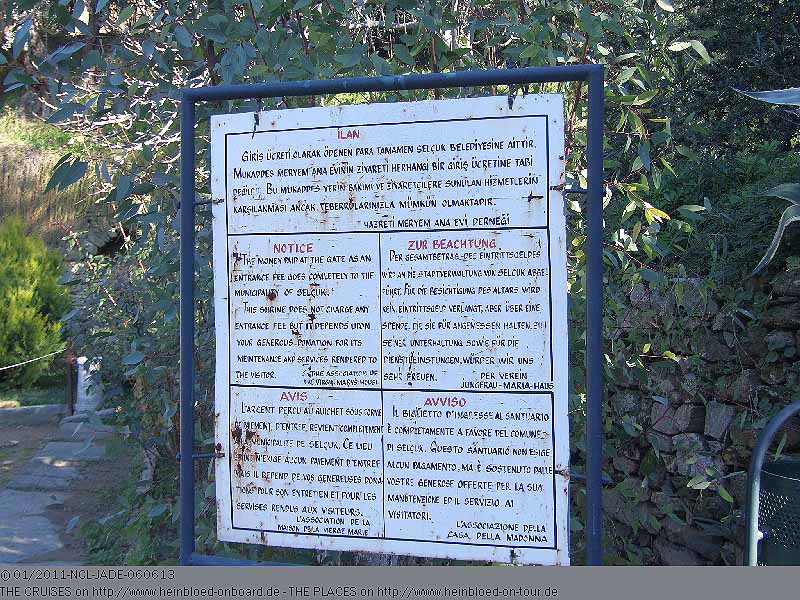 İLAN
GİRİŞ ÜCRETİ OLARAK ÖDENEN PARA TAMAMEN SELÇUK BELEDİYESİNE AİTTİR.
MUKADDES MERYEM ANA EVİNİN ZİYARETİ HERHANGİ BİR GİRİŞ ÜCRETİNE TABİ
DEĞİLDİR. BU MUKADDES YERİN BAKIMI VE ZİYARETÇİLERE SUNULAN HİZMETLERİN
KARŞILANMASI ANCAK TEBERRULARINIZLA MÜMKÜN OLMAKTADIR.
HAZRETİ MERYEM ANA EVİ DERNEĞİ
NOTICE
THE MONEY PAID AT THE GATE AS AN
ENTRANCE FEE GOES COMLETELY TO THE
MUNICIPALITY OF SELÇUK.
THIS SHRINE DOES NOT CHARGE ANY
ENTRANCE FEE BUT IT DEPENDS UPON
YOUR GENEROUS DONATION FOR ITS
MAINTENANCE AND SERVICES RENDERED TO
THE VISITOR.
THE ASSOCIATION OF
THE VIRGIN MARYS HOUSE
ZUR BEACHTUNG
PER GESAMTBETRAG DES EINTRITTSGELDES
WIRD AN DIE STADTVERWALTUNG VON SELÇUK ABGE
FÜHRT. FÜR DIE BESICHTIGUNG DES ALTARS WIRD
KEIN EINTRITTSGELD VERLANGT, ABER ÜBER EINE
SPENDE, DIE SIE FÜR ANGEMESSEN HALTEN, ZU
SEINER UNTERHALTUNG SOWIE FÜR DIE
DIENSTLEINSTUNGEN, WÜRDER WIR UNS
SEHR FREUEN.
PER VEREIN
JUNGFRAU-MARIA-HAUS
AVIS
L'ARGENT PERÇU AU GUICHET SOUS FORME
DE PAIEMENT, D'ENTREE REVIENT COMPLETEMENT
MUNICIPALITE DE SELÇUK. CE LIEU
N'EXIGE AUCUN PAIEMENT D'ENTREE
MAIS IL DEPEND DE VOS GENEREUSES DONA
TIONS POUR SON ENTRETIEN ET POUR LES
SERVISES RENDUS AUX VISITEURS.
L'ASSOCIATION DE LA
MAISON DE LA VIERGE MARIE
AVVISO
IL BIGLIETTO D'INGRESSE AL SANTUARIO
È COMPLETAMENTE A FAVORE DEL COMUNE
DI SELÇUK. QUESTO SANTUARIO NON ESIGE
ALCUN PAGAMENTO, MA È SOSTENUTO DALLE
VOSTRE GENEROSE OFFERTE PER LA SUA
MANUTENZIONE ED IL SERVIZIO AI
VISITATORI.
L'ASSOCIAZIONE DELLA
CASA DELLA MADONNA
©01/2011-NCL-JADE-060613
THE CRUISES on http://www.heinbloed-onboard.de - THE PLACES on http://www.heinbloed-on-tour.de